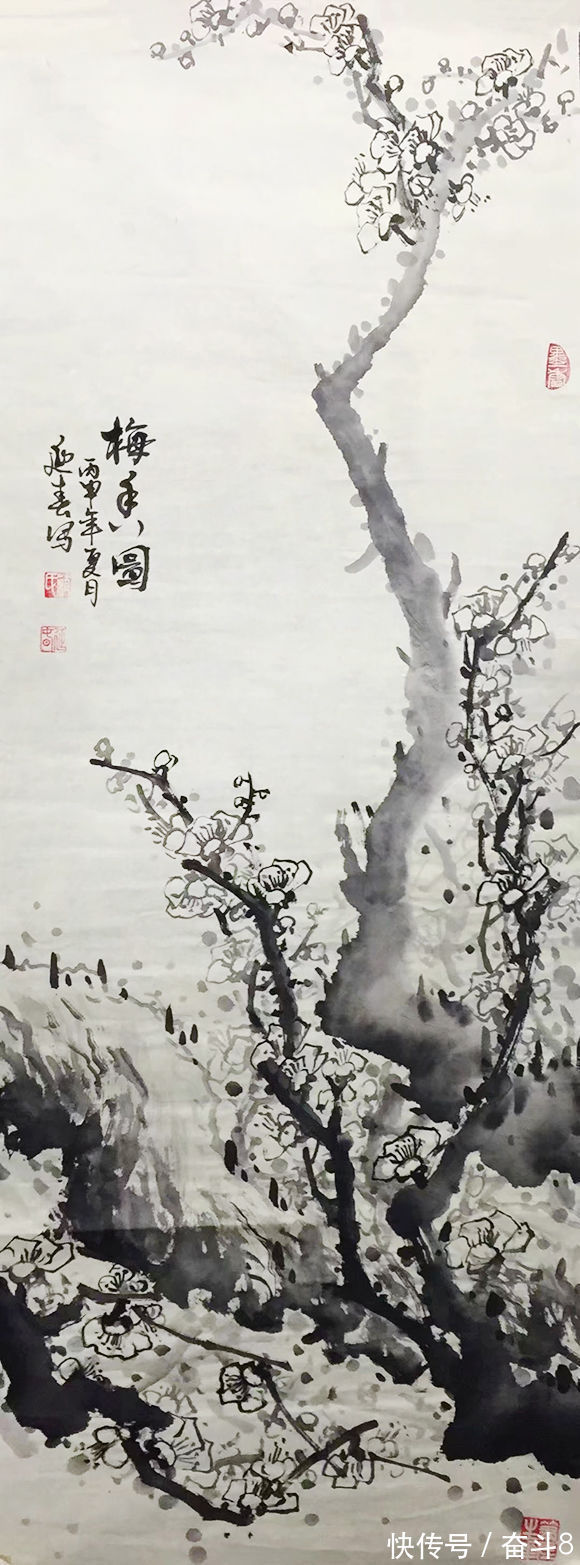 梅香图
丙申年夏月
延春写
快传号 / 奋斗8